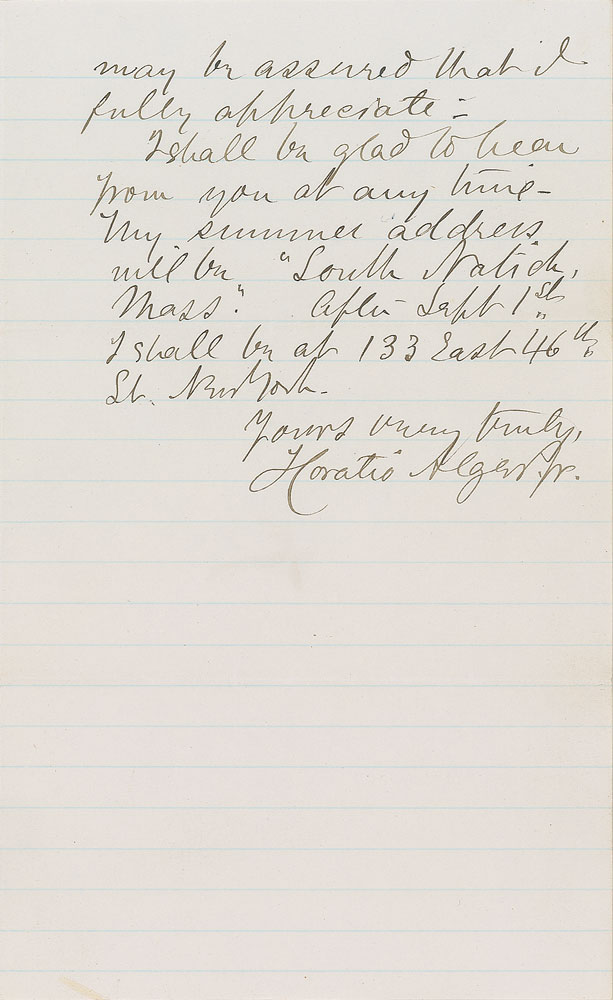 may be assured that I
fully appreciate –
I shall be glad to hear
from you at any time –
My summer address
will be "South Natick,
Mass." After Sept 1st
I shall be at 133 East 46th
St. New York.
Yours very truly,
Horatio Alger Jr.